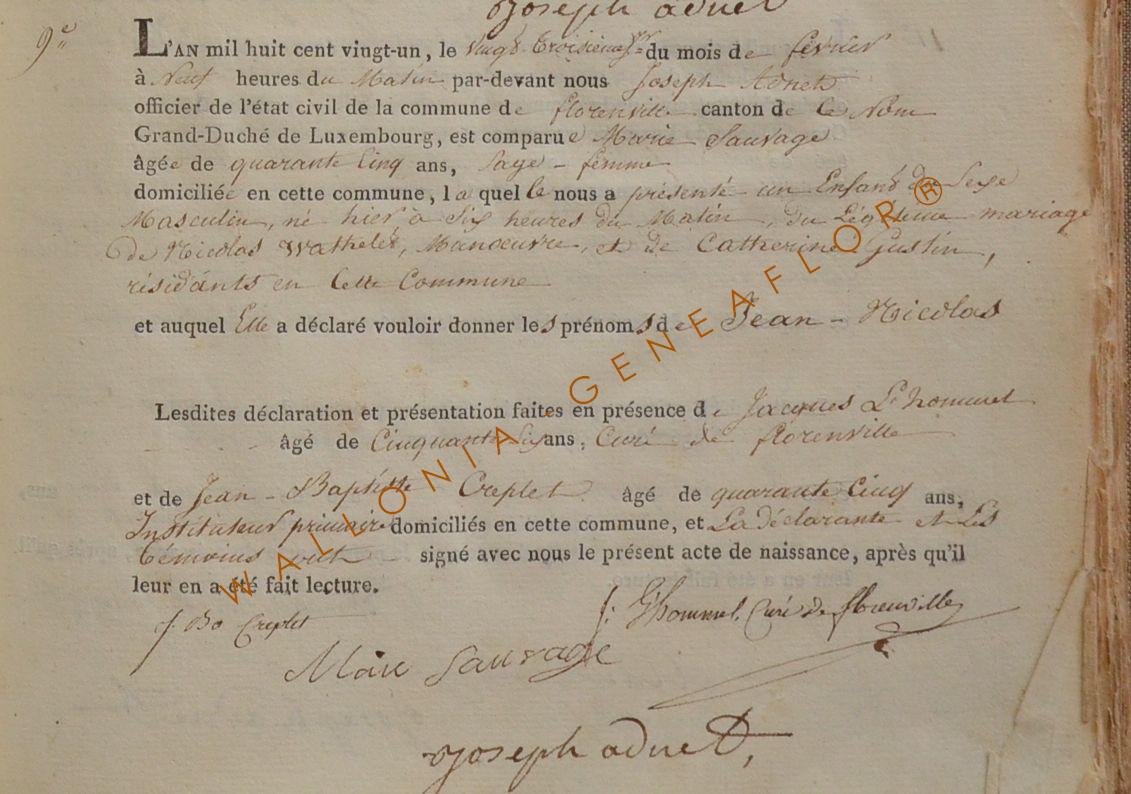 joseph adnet
9e
L'AN mil huit cent vingt-un, le vingt troisieme jr du mois de fevrier
à Neuf heures du Matin par-devant nous Joseph Adnet
officier de l'état civil de la commune de florenville canton de Ce Nom
Grand-Duché de Luxembourg, est comparue Marie Sauvage
âgée de quarante Cinq ans, Sage-femme
domiciliée en cette commune, laquelle nous a présenté un Enfant de Sexe
Masculin, né hier à Six heures du Matin, du Légitime mariage
de Nicolas Wathelet, Manoeuvre, et de Catherine Gustin,
résidants en Cette Commune
et auquel Elle a déclaré vouloir donner les prénoms de Jean-Nicolas
Lesdites déclaration et présentation faites en présence de Jacques L'hommel
âgé de Cinquante Six ans, Curé de florenville
et de Jean-Baptiste Creplet âgé de quarante Cinq ans,
Instituteur primaire domiciliés en cette commune, et La déclarante et Les
témoins ont signé avec nous le présent acte de naissance, après qu'il
leur en a été fait lecture.
j. Bo Creplet
j: Lhommel. Curé de florenville
Marie Sauvage
joseph adnet,
WALLONIA GENEAFLOR ®